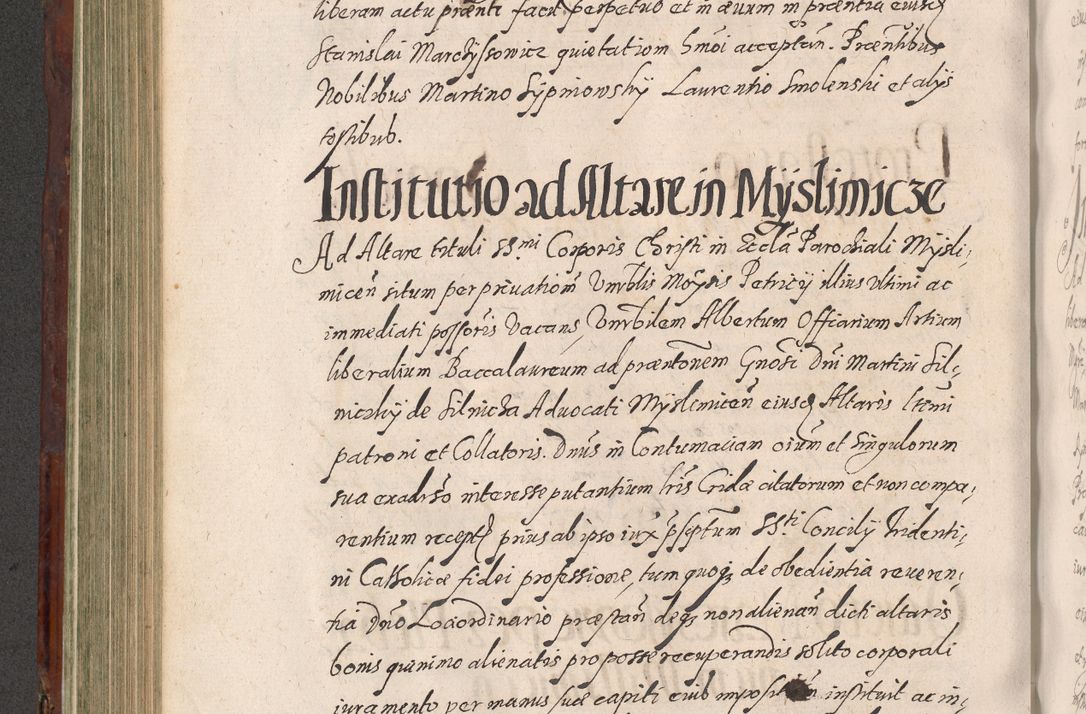 liberam actu præsenti facit perpetuo et in ævum in præsentia eiusq
Stanislai Marchyssowicz quietatiom hmoi acceptan. Præntibus
Nobilibus Martino Sypniowsky Laurentio Smolenski et alys
testibus.
Institutio ad Altare in Myslimicze
Ad Altare tituli SS.mi Corporis Christi in Eccla Parochiali Mysli,
micen situm per priuationem Vnrblis Moysis Patricij illius vltimi ac
immediati possoris Vacans, Vnrbilem Albertum Officiarium Artium
liberalium Baccalaureum ad præntonem Gnosi Dni Martini Sil,
niczky de Silnicza Aduocati Myslimicen eiusq Altaris ltimi
patroni et Collatoris. Dnus in Contumaciam oium et singulorum
sua exadrso interesse putantium lris Cridæ citatorum et non compa,
rentium recepta prius ab ipso iux pscptum SS.ti Concilij Tridenti,
ni Catholicæ fidei professione, tum quoq de obedientia reueren,
tia Dno Locoordinario præstan deq non alienan dicti altaris
bonis quinimo alienatis pro posse recuperandis solito corporali
iuramento per manus suæ capiti eius impositiom instituit ac in,